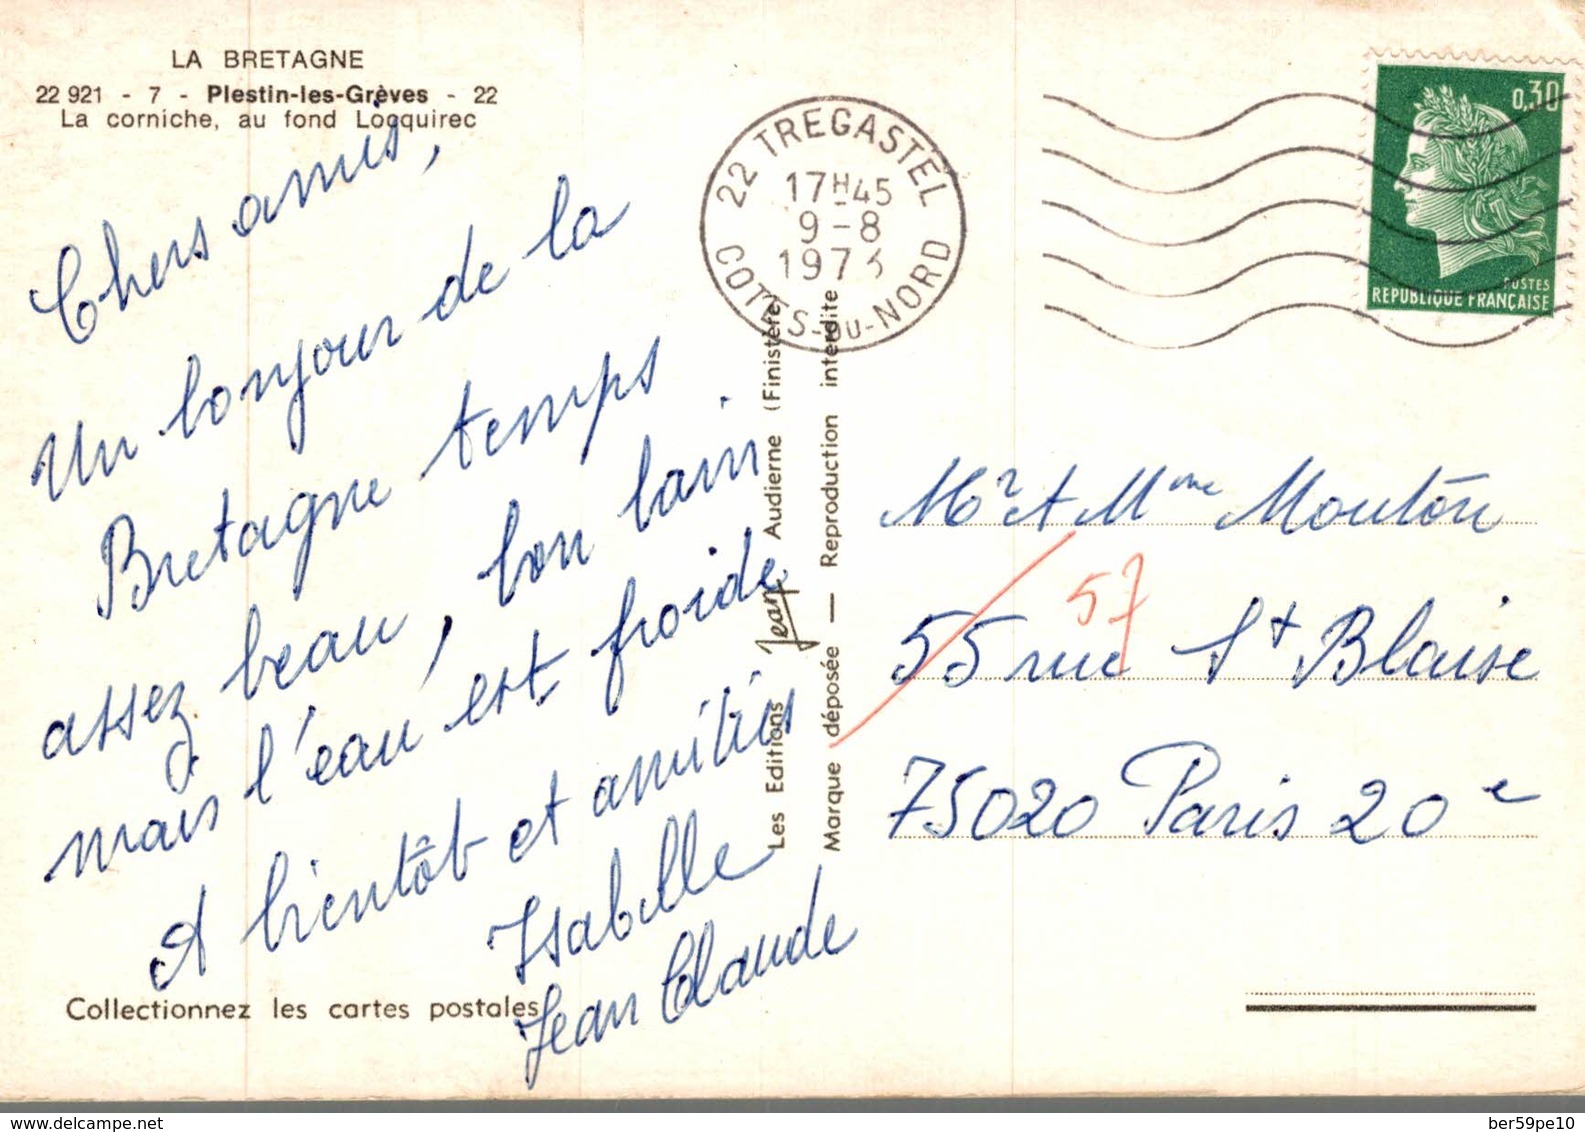 LA BRETAGNE
22 921 - 7 - Plestin-les-Grèves - 22
La corniche, au fond Locquirec
Chers amis,
Un bonjour de la
Bretagne temps
assez beau, bon bain
mais l'eau est froide.
A bientôt et amitiés
Isabelle
Jean Claude
Collectionnez les cartes postales
Les Editions Jean Audierne (Finistère)
Marque déposée — Reproduction interdite
22 TREGASTEL
17H45
9-8
1973
COTES-DU-NORD
0,30
POSTES
REPUBLIQUE FRANÇAISE
Mr et Mme Mouton
57
55 rue St Blaise
75020 Paris 20e
delcampe.net
ber59pe10